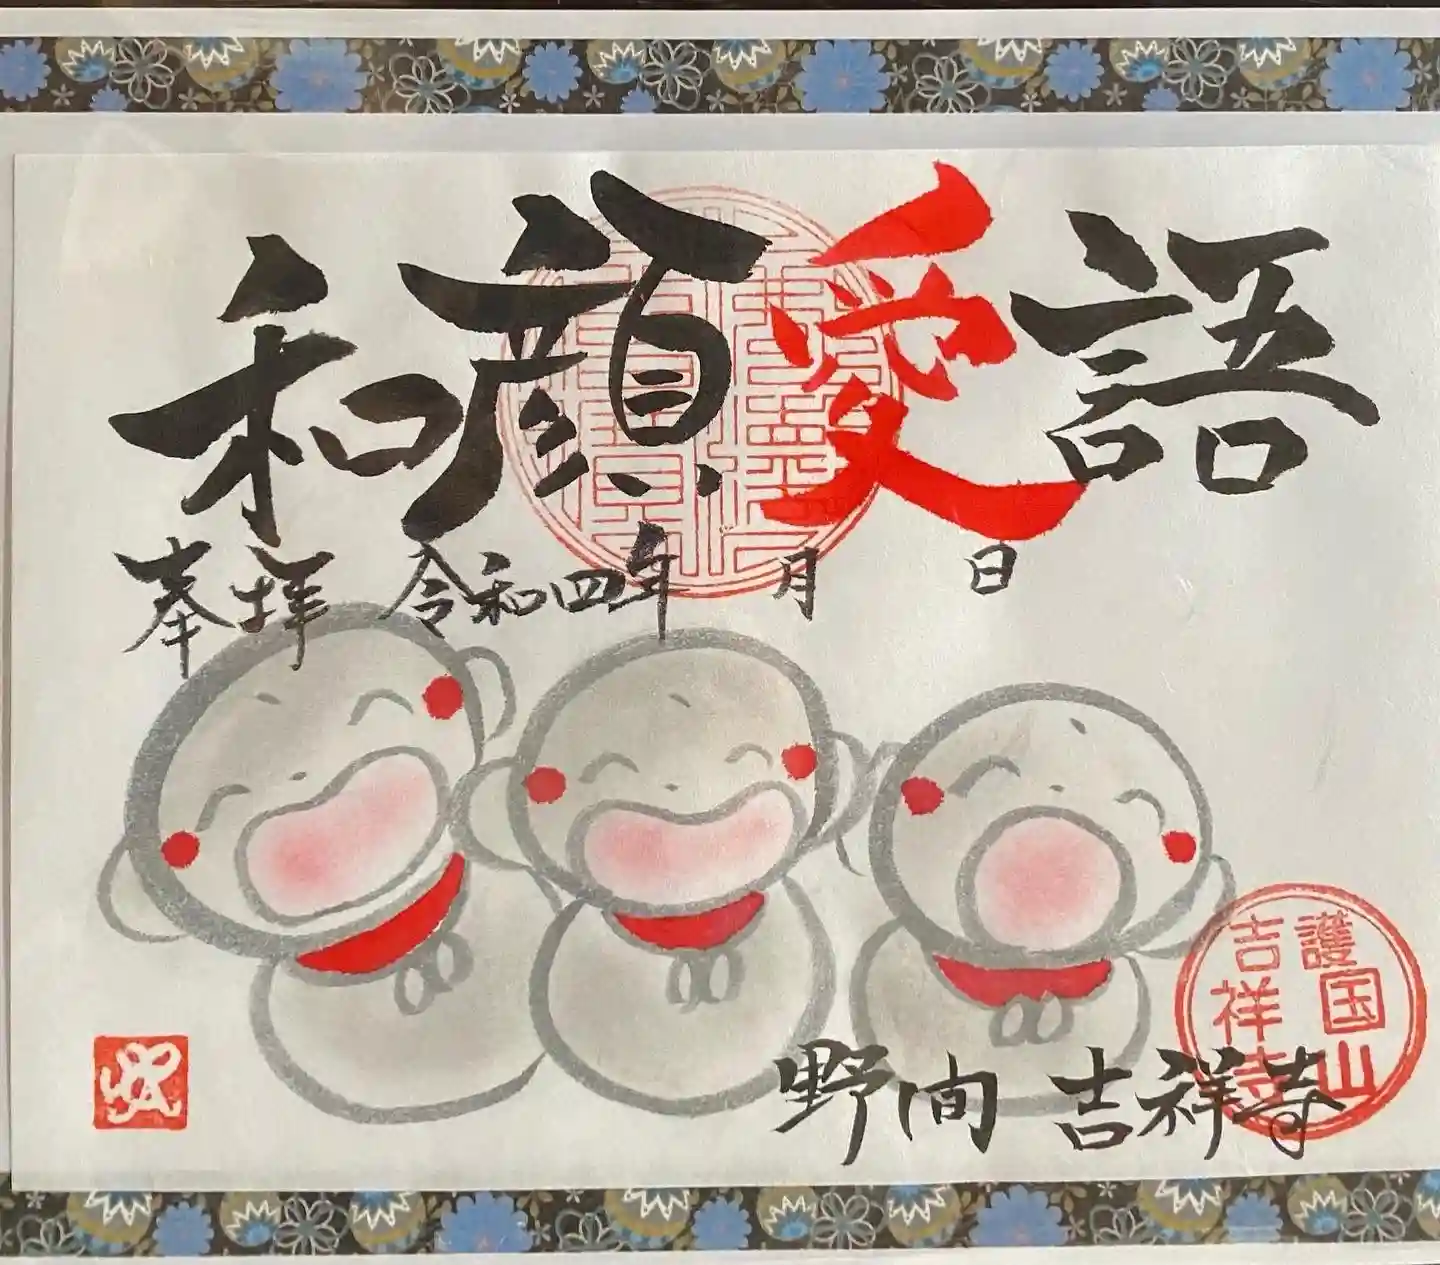 和顔愛語
奉拝 令和四年 月 日
護国山
吉祥寺
野間 吉祥寺